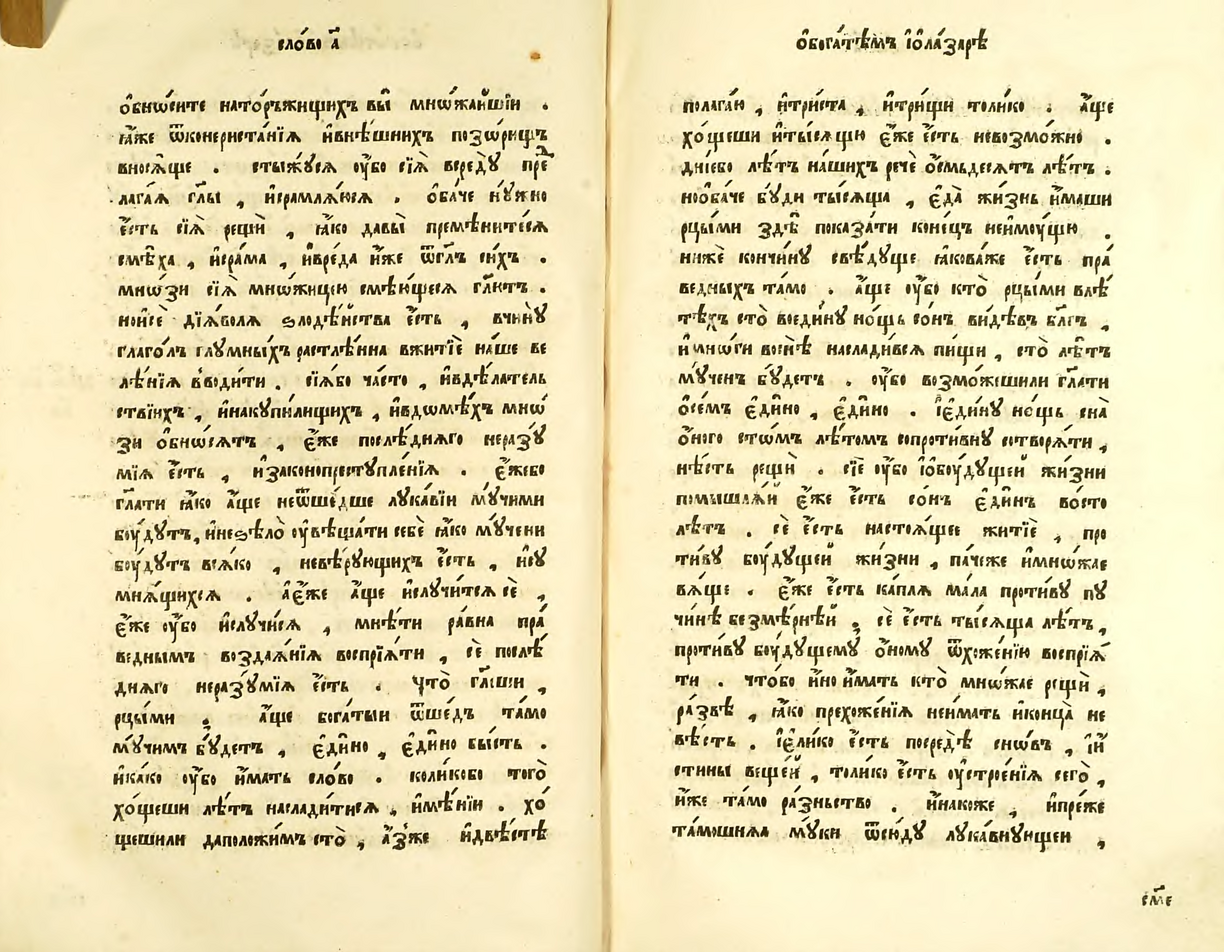 сло́во а҃
ѻ҆бносите наторъжищихъ вы̀ мнѡжа́йшїи .
ꙗ҆́же ѿконериста́нїѧ и҆внѣ́шнихъ позѡрищъ
внося́ще . стыжꙋ́сѧ оу҆̀бо сїѧ̀ вередꙋ̀ пред
лага́ѧ гл҃ы , и҆срамлѧ́юсѧ . ѻ҆ба́че нꙋ́жно
є҆́сть сїѧ̀ рещѝ , ꙗ҆́ко давы̀ премѣ́нитесѧ
смѣ́ха , и҆сра́ма , и҆вре́да и҆́же ѿгл҃ъ си́хъ .
мно́зи сїѧ̀ мно́жицею смѣю́щесѧ гл҃ютъ .
нои҆сѐ дїѧ́волѧ ѕлодѣ́йства є҆́сть , вчи́нꙋ
глаго́лъ глꙋ́мныхъ растлѣ́нна вжитїѐ на́ше ве
лѣ́нїѧ вводи́ти . сїѧ́бо ча́сто , и҆вдѣ́латель
ствїихъ , и҆накꙋпи́лищихъ , и҆вдѡмѣ́хъ мнѡ́
зи ѻ҆бно́сѧтъ , є҆́же послѣ́днѧго неразꙋ́
мїѧ є҆́сть , и҆законопрестꙋпле́нїѧ . є҆́жебо
гл҃ати ꙗ҆́ко а҆́ще неѿше́дше лꙋка́вїи мꙋ́чими
бꙋ́дꙋтъ, и҆неѕѣлѡ̀ оу҆вѣща́ти себѐ ꙗ҆́ко мꙋ́чени
бꙋ́дꙋтъ всѧ́ко , невѣ́рꙋющихъ є҆́сть , и҆сꙋ
мнѧ́щихсѧ . а҆є҆́же а҆́ще и҆слꙋчи́тсѧ сѐ ,
є҆́же оу҆́бо и҆слꙋчи́сѧ , мнѣ́ти ра́вна пра́
веднымъ воздаѧ́нїѧ воспрїѧ́ти , сѐ послѣ́
днѧго неразꙋ́мїѧ є҆́сть . Что̀ гл҃еши ,
рцы́ми . а҆́ще бога́тыи ѿше́дъ та́мо
мꙋ́чимъ бꙋ́детъ , є҆ди́но , є҆ди́но бы́сть .
и҆ка́ко оу҆́бо и҆́мать сло́во . коли́кобо того̀
хо́щеши лѣ́тъ наслади́тисѧ , и҆мѣ́нїи . хо́
щешили даположи́мъ сто̀ , а҆́зже и҆двѣ́стѣ
ѻ҆бога́тѣмъ і҆ѻла́зарѣ
полага́ю , и҆три́ста , и҆три́щи толи́ко . а҆́ще
хо́щеши и҆ты́сѧщю є҆́же є҆́сть невозмо́жно .
дні́ебо лѣ́тъ на́шихъ речѐ ѻ҆́смьдесѧтъ лѣ́тъ .
нообаче бꙋ́ди ты́сѧща , є҆да̀ жи́знь и҆́маши
рцы́ми здѣ̀ показа́ти коне́цъ неи҆мꙋ́щю .
нижѐ кончи́нꙋ свѣ́дꙋще ꙗ҆кова́же є҆́сть пра́
ведныхъ та́мо . а҆́ще оу҆́бо кто̀ рцы́ми влѣ́
тѣхъ сто̀ воеди́нꙋ но́щь со́нъ ви́дѣвъ бл҃гъ ,
и҆мно́ги воснѣ̀ наслади́всѧ пи́щи , сто̀ лѣ́тъ
мꙋ́ченъ бꙋ́детъ . оу҆́бо возмо́жешили гл҃ати
ѻ҆се́мъ є҆ди́но , є҆ди́но . і҆є҆ди́нꙋ но́щь сна̀
ѻ҆́ного сто́мъ лѣ́томъ сопроти́внꙋ сотворѧ́ти ,
нѣ́сть рещѝ . сїѐ оу҆́бо і҆ѻбꙋ́дꙋщей жи́зни
помышлѧ́й є҆́же є҆́сть со́нъ є҆ди́нъ восто
лѣ́тъ . сѐ є҆́сть настоѧ́щее житїѐ , про
ти́вꙋ бꙋ́дꙋщей жи́зни , па́чеже и҆мно́жае
вѧ́ще . є҆́же є҆́сть ка́плѧ мала проти́вꙋ пꙋ
чи́нѣ безмѣ́рнѣй , сѐ є҆́сть ты́сѧща лѣ́тъ ,
проти́вꙋ бꙋ́дꙋщемꙋ ѻ҆́номꙋ ѿхожде́нїю воспрїѧ́
ти . что́бо и҆́но и҆́мать кто̀ мно́жае рещѝ ,
ра́звѣ , ꙗ҆́ко прехоже́нїѧ неи҆́мать и҆конца̀ не
вѣ́сть . і҆є҆ли́ко є҆́сть посредѣ̀ сно́въ , і҆и҆́
стины веще́й , толи́ко є҆́сть оу҆строе́нїѧ сего̀ ,
и҆́же та́мо ра́зньство . и҆на́коже , и҆пре́же
та́мошнѧѧ мꙋ́ки ѿсю́дꙋ лꙋка́внꙋющеи ,
см҃е